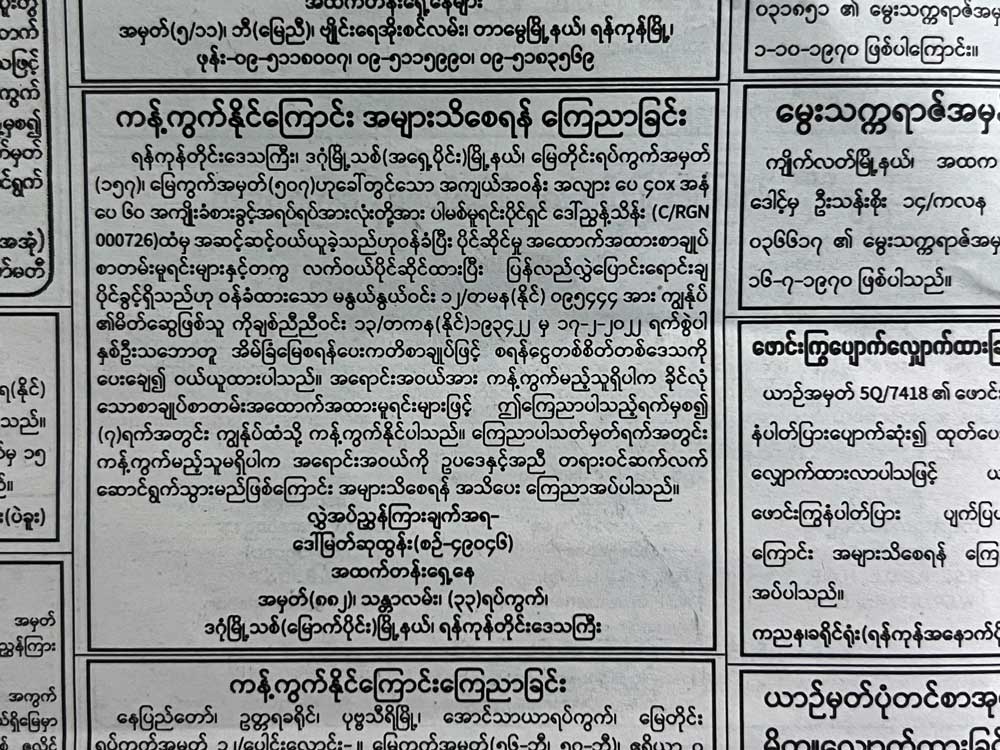 အထက်တန်းရှေ့နေများ
အမှတ်(၅/၁၁)၊ ဘီ(မြေညီ)၊ ဗျိုင်းရေအိုးစင်လမ်း၊ တာမွေမြို့နယ်၊ ရန်ကုန်မြို့၊
ဖုန်း-၀၉-၅၁၁၈၀၀၇၊ ၀၉-၅၁၁၅၉၉၀၊ ၀၉-၅၁၈၃၅၆၉
ကန့်ကွက်နိုင်ကြောင်း အများသိစေရန် ကြေညာခြင်း
ရန်ကုန်တိုင်းဒေသကြီး၊ ဒဂုံမြို့သစ်(အရှေ့ပိုင်း)မြို့နယ်၊ မြေတိုင်းရပ်ကွက်အမှတ်
(၁၅၇)၊ မြေကွက်အမှတ်(၅၀၇)ဟုခေါ်တွင်သော အကျယ်အဝန်း အလျား ပေ ၄၀x အနံ
ပေ ၆၀ အကျိုးခံစားခွင့်အရပ်ရပ်အားလုံးတို့အား ပါမစ်မူရင်းပိုင်ရှင် ဒေါ်ညွန့်သိန်း (C/RGN
000726)ထံမှ အဆင့်ဆင့်ဝယ်ယူခဲ့သည်ဟုဝန်ခံပြီး ပိုင်ဆိုင်မှု အထောက်အထားစာချုပ်
စာတမ်းမူရင်းများနှင့်တကွ လက်ဝယ်ပိုင်ဆိုင်ထားပြီး ပြန်လည်လွှဲပြောင်းရောင်းချ
ပိုင်ခွင့်ရှိသည်ဟု ဝန်ခံထားသော မနွယ်နွယ်ဝင်း ၁၂/တမန(နိုင်) ၀၉၅၄၄၄ အား ကျွန်ုပ်
၏မိတ်ဆွေဖြစ်သူ ကိုချစ်ညီညီဝင်း ၁၃/တကန(နိုင်)၁၉၃၄၂၂ မှ ၁၇-၂-၂၀၂၂ ရက်စွဲပါ
နှစ်ဦးသဘောတူ အိမ်ခြံမြေစရန်ပေးကတိစာချုပ်ဖြင့် စရန်ငွေတစ်စိတ်တစ်ဒေသကို
ပေးချေ၍ ဝယ်ယူထားပါသည်။ အရောင်းအဝယ်အား ကန့်ကွက်မည့်သူရှိပါက ခိုင်လုံ
သောစာချုပ်စာတမ်းအထောက်အထားမူရင်းများဖြင့် ဤကြေညာပါသည့်ရက်မှစ၍
(၇)ရက်အတွင်း ကျွန်ုပ်ထံသို့ ကန့်ကွက်နိုင်ပါသည်။ ကြေညာပါသတ်မှတ်ရက်အတွင်း
ကန့်ကွက်မည့်သူမရှိပါက အရောင်းအဝယ်ကို ဥပဒေနှင့်အညီ တရားဝင်ဆက်လက်
ဆောင်ရွက်သွားမည်ဖြစ်ကြောင်း အများသိစေရန် အသိပေး ကြေညာအပ်ပါသည်။
လွှဲအပ်ညွှန်ကြားချက်အရ-
ဒေါ်မြတ်ဆုထွန်း(စဉ်-၄၉၀၄၆)
အထက်တန်းရှေ့နေ
အမှတ်(၈၈၂)၊ သန္တာလမ်း၊ (၃၃)ရပ်ကွက်၊
ဒဂုံမြို့သစ်(မြောက်ပိုင်း)မြို့နယ်၊ ရန်ကုန်တိုင်းဒေသကြီး
ကန့်ကွက်နိုင်ကြောင်းကြေညာခြင်း
နေပြည်တော်၊ ဥတ္တရခရိုင်၊ ပုဗ္ဗသီရိမြို့၊ အောင်သာယာရပ်ကွက်၊ မြေတိုင်း
၀၃၁၈၅၁ ၏ မွေးသက္ကရာဇ်အမှ
၁-၁၀-၁၉၇၀ ဖြစ်ပါကြောင်း။
မွေးသက္ကရာဇ်အမှ
ကျိုက်လတ်မြို့နယ်၊ အထက
ဒေါင့်မှ ဦးသန်းစိုး ၁၄/ကလန
၀၃၆၆၁၇ ၏ မွေးသက္ကရာဇ်အမှ
၁၆-၇-၁၉၇၀ ဖြစ်ပါသည်။
ဖောင်းကြွပျောက်လျှောက်ထားခြ
ယာဉ်အမှတ် 5Q/7418 ၏ ဖောင်း
နံပါတ်ပြားပျောက်ဆုံး၍ ထုတ်ပေ
လျှောက်ထားလာပါသဖြင့်
ဖောင်းကြွနံပါတ်ပြား ပျက်ပြယ
ကြောင်း အများသိစေရန် ကြေ
အပ်ပါသည်။
ကညန၊ခရိုင်ရုံး(ရန်ကုန်အနောက်
ယာဉ်မှတ်ပုံတင်စာအုပ